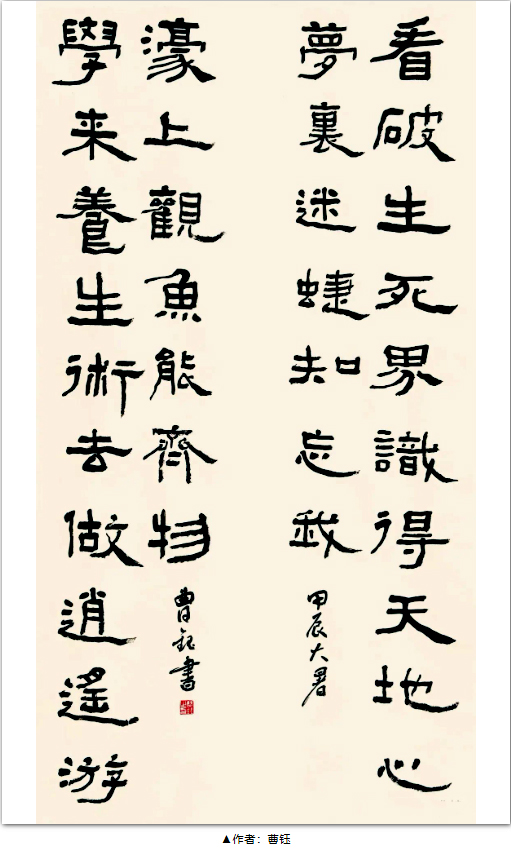 看破生死界識得天地心
夢裏迷蜨知忘我
甲辰大暑
學来養生術去做逍遙游
濠上觀魚能齊物
曹鈺書
▲作者：曹钰